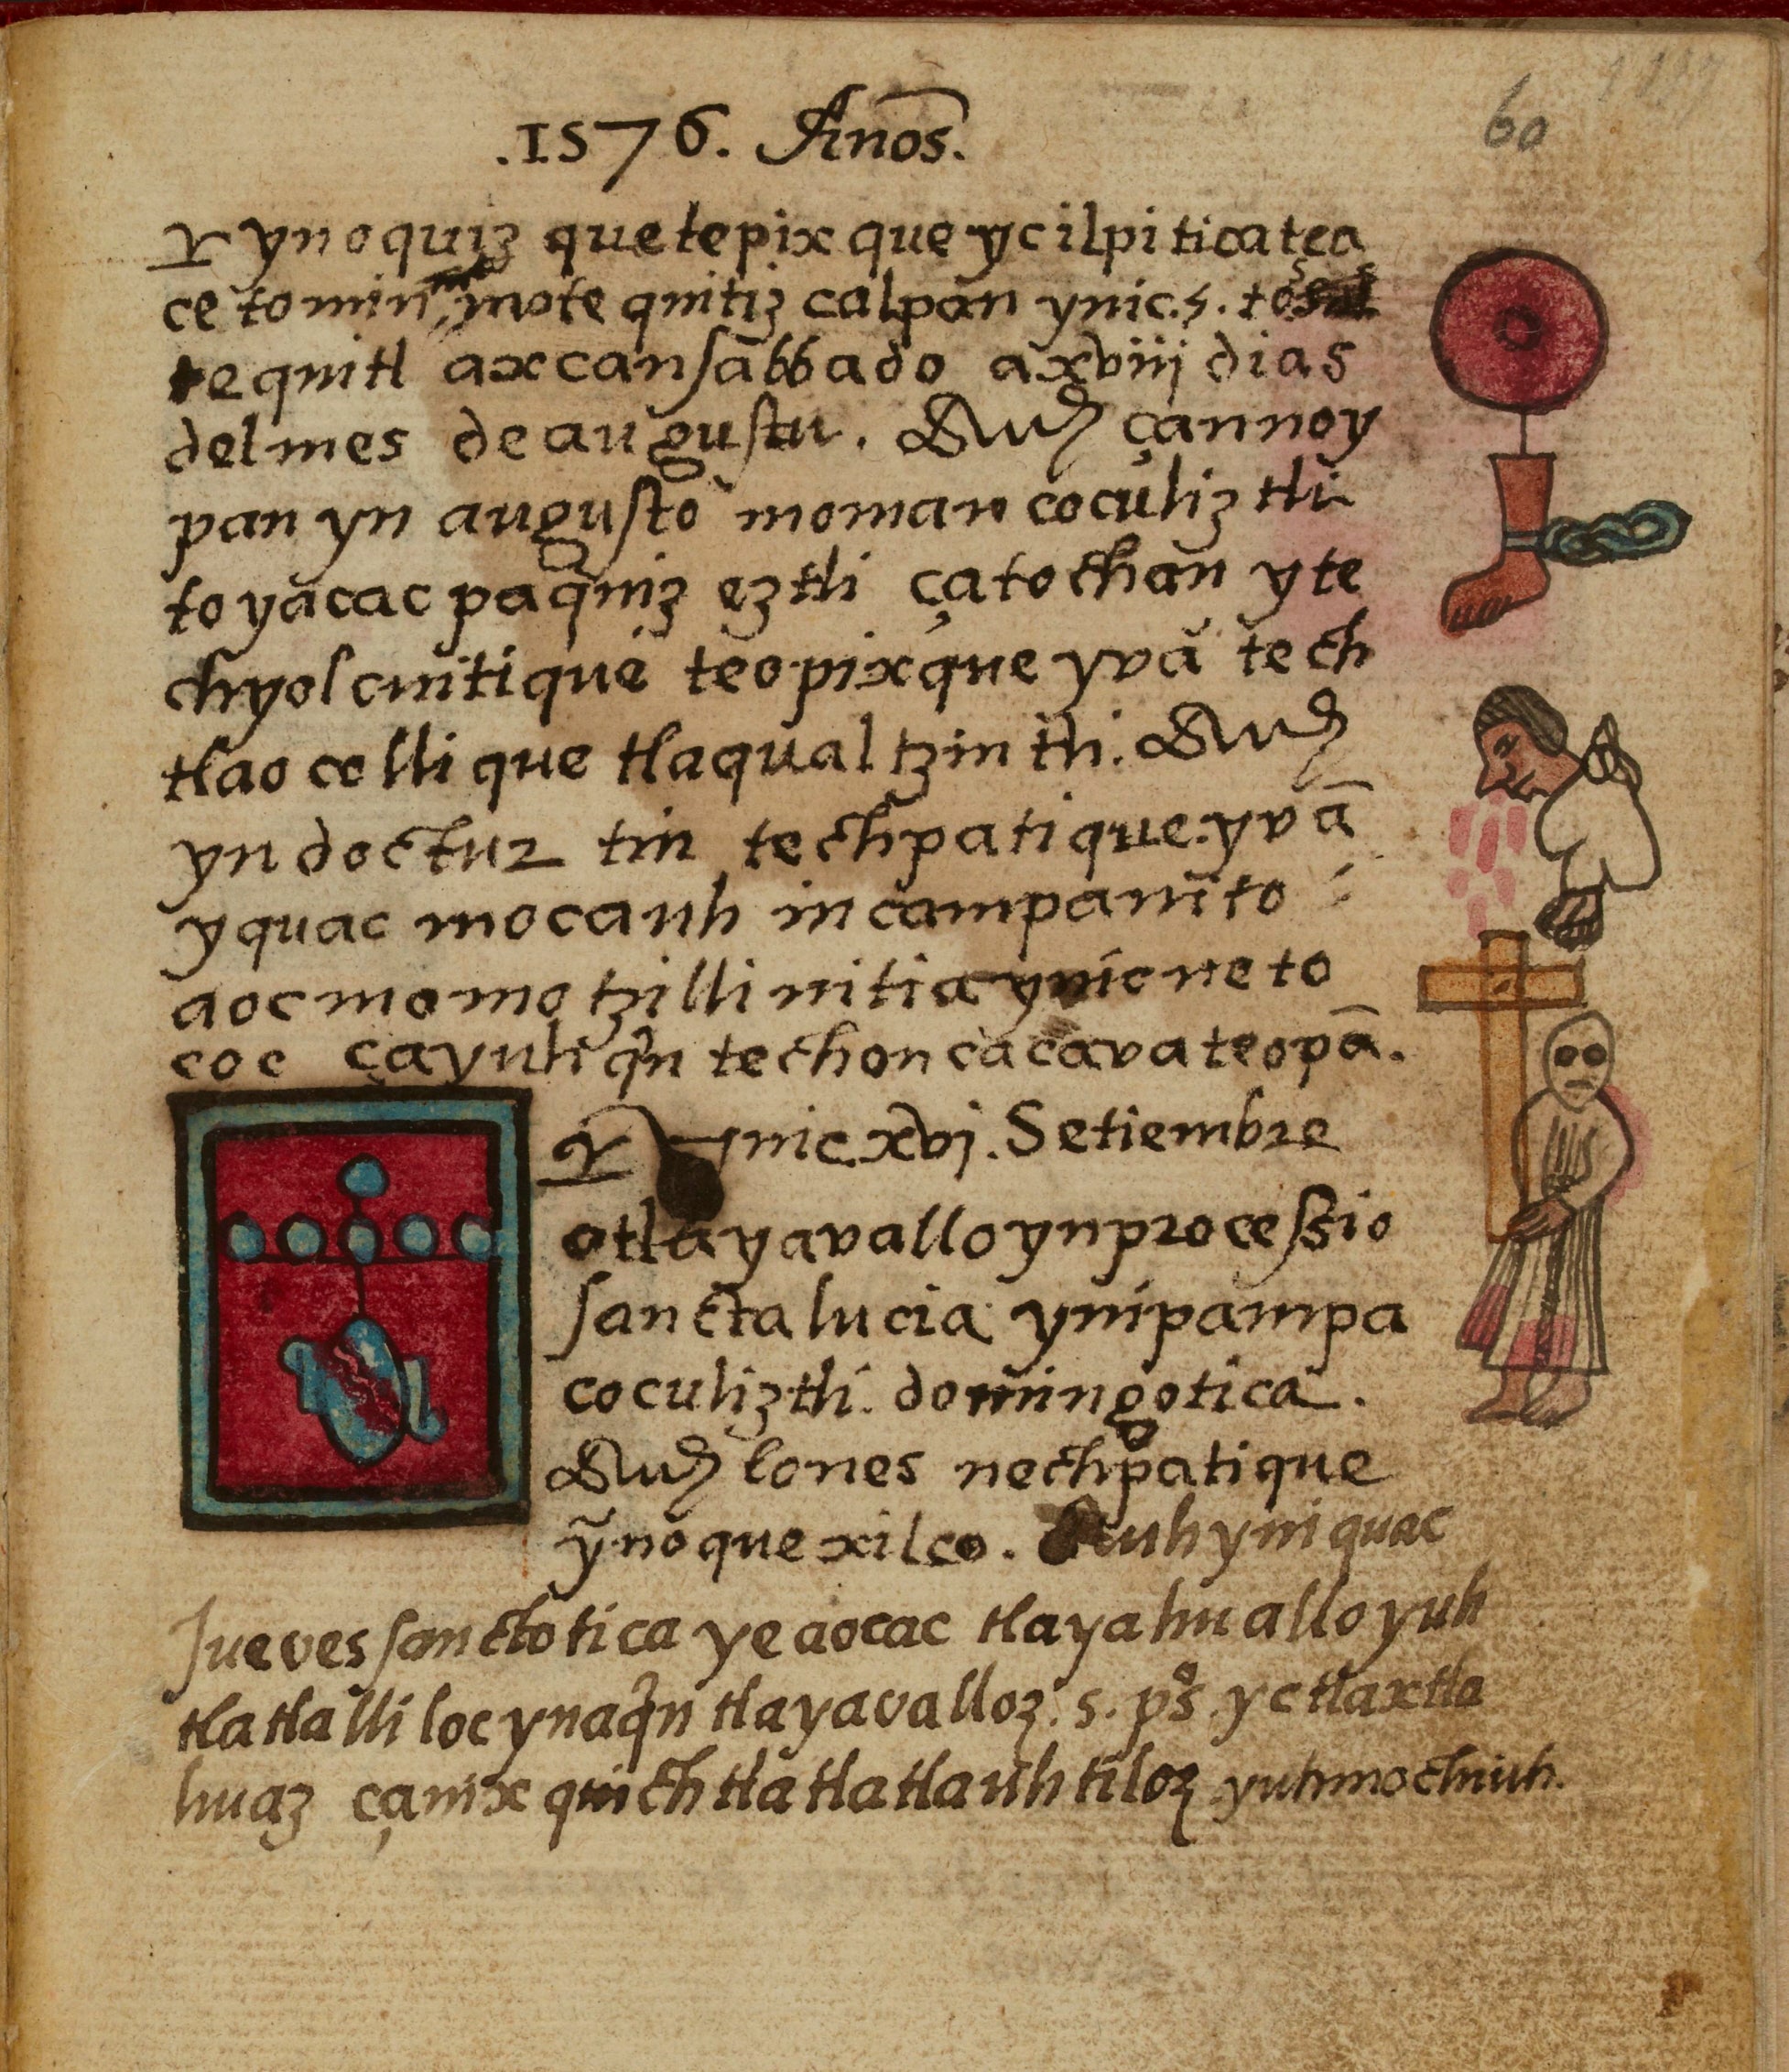 .1576. Años.
60
Y ynoquiz quetepixque yc ilpiticatca
ce tomin motequitiz calpan ynic.s. to
tequitl axcan sabbado axviij dias
del mes de augustu. Auh çannoy
pan yn augusto moman coculiztli
toyacac paq̄uiz eztli ça tochan yte
chyolcuitique teopixque yvā tech
tlaocellique tlaqualtzintli. Auh
yn doctur tin techpatique. yvā
yquac mocauh in campanito
aocmo motzillinitia ynic neto
coc çayuliq̄n techoncacava teopā.
Y ynic.xvj. Setiembre
otlayavalloyn processio
sancta lucia ynipampa
coculiztli. domingotica.
Auh lones nechpatique
ỹnoquexilco. Auh yniquac
Juevessanctotica ye aocac tlayahualloyuh
tlatlalliloc ynaq̄n tlayavalloz. s. pos. yc tlaxtla
huaz çanixquich tlatlatlauhtiloz yuhmochiuh.